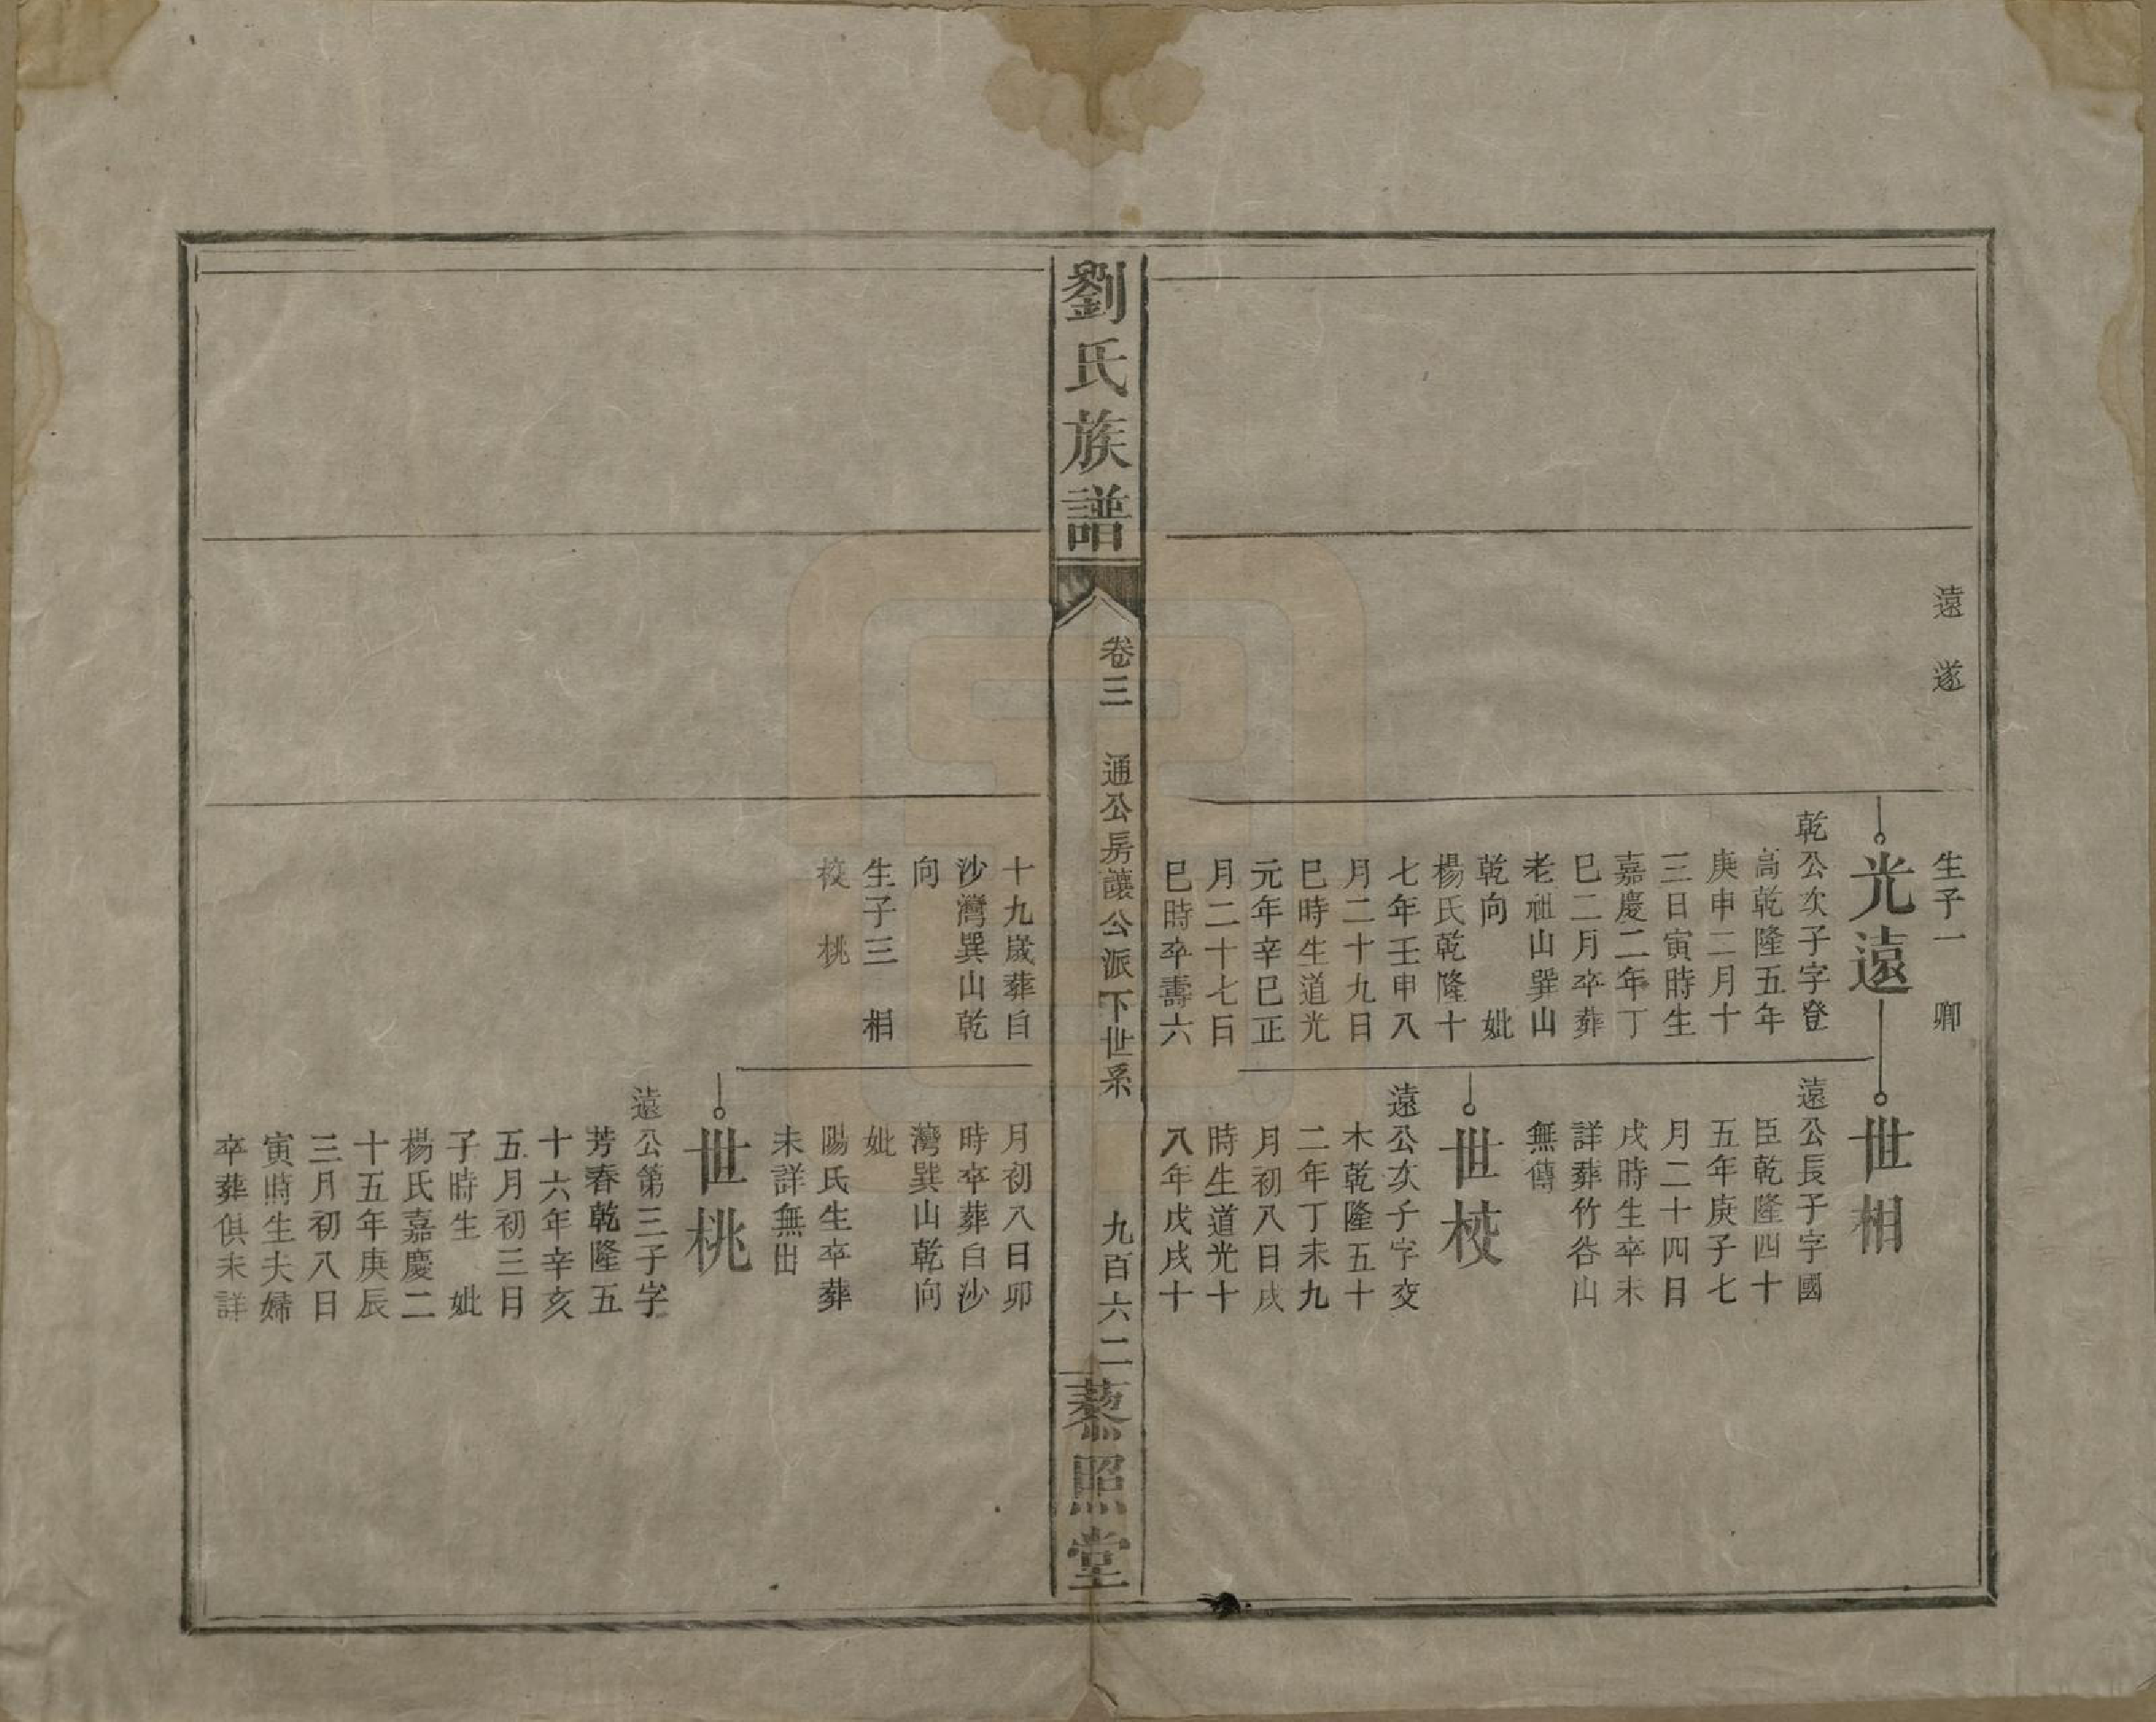 遠　遂
生子一　卿
光遠
乾公次子字登
高乾隆五年
庚申二月十
三日寅時生
嘉慶二年丁
巳二月卒葬
老祖山巽山
乾向　妣
楊氏乾隆十
七年壬申八
月二十九日
巳時生道光
元年辛巳正
月二十七日
巳時卒壽六
世相
遠公長子字國
臣乾隆四十
五年庚子七
月二十四日
戌時生卒未
詳葬竹峇山
無傳
世校
遠公次子字交
木乾隆五十
二年丁未九
月初八日戌
時生道光十
八年戊戌十
劉氏族譜
卷三　通公房讓公派下世系　九百六二
藜照堂
十九歲葬白
沙灣巽山乾
向
生子三　相
校　桃
月初八日卯
時卒葬白沙
灣巽山乾向
妣
陽氏生卒葬
未詳無出
世桃
遠公第三子字
芳春乾隆五
十六年辛亥
五月初三日
子時生　妣
楊氏嘉慶二
十五年庚辰
三月初八日
寅時生夫婦
卒葬俱未詳